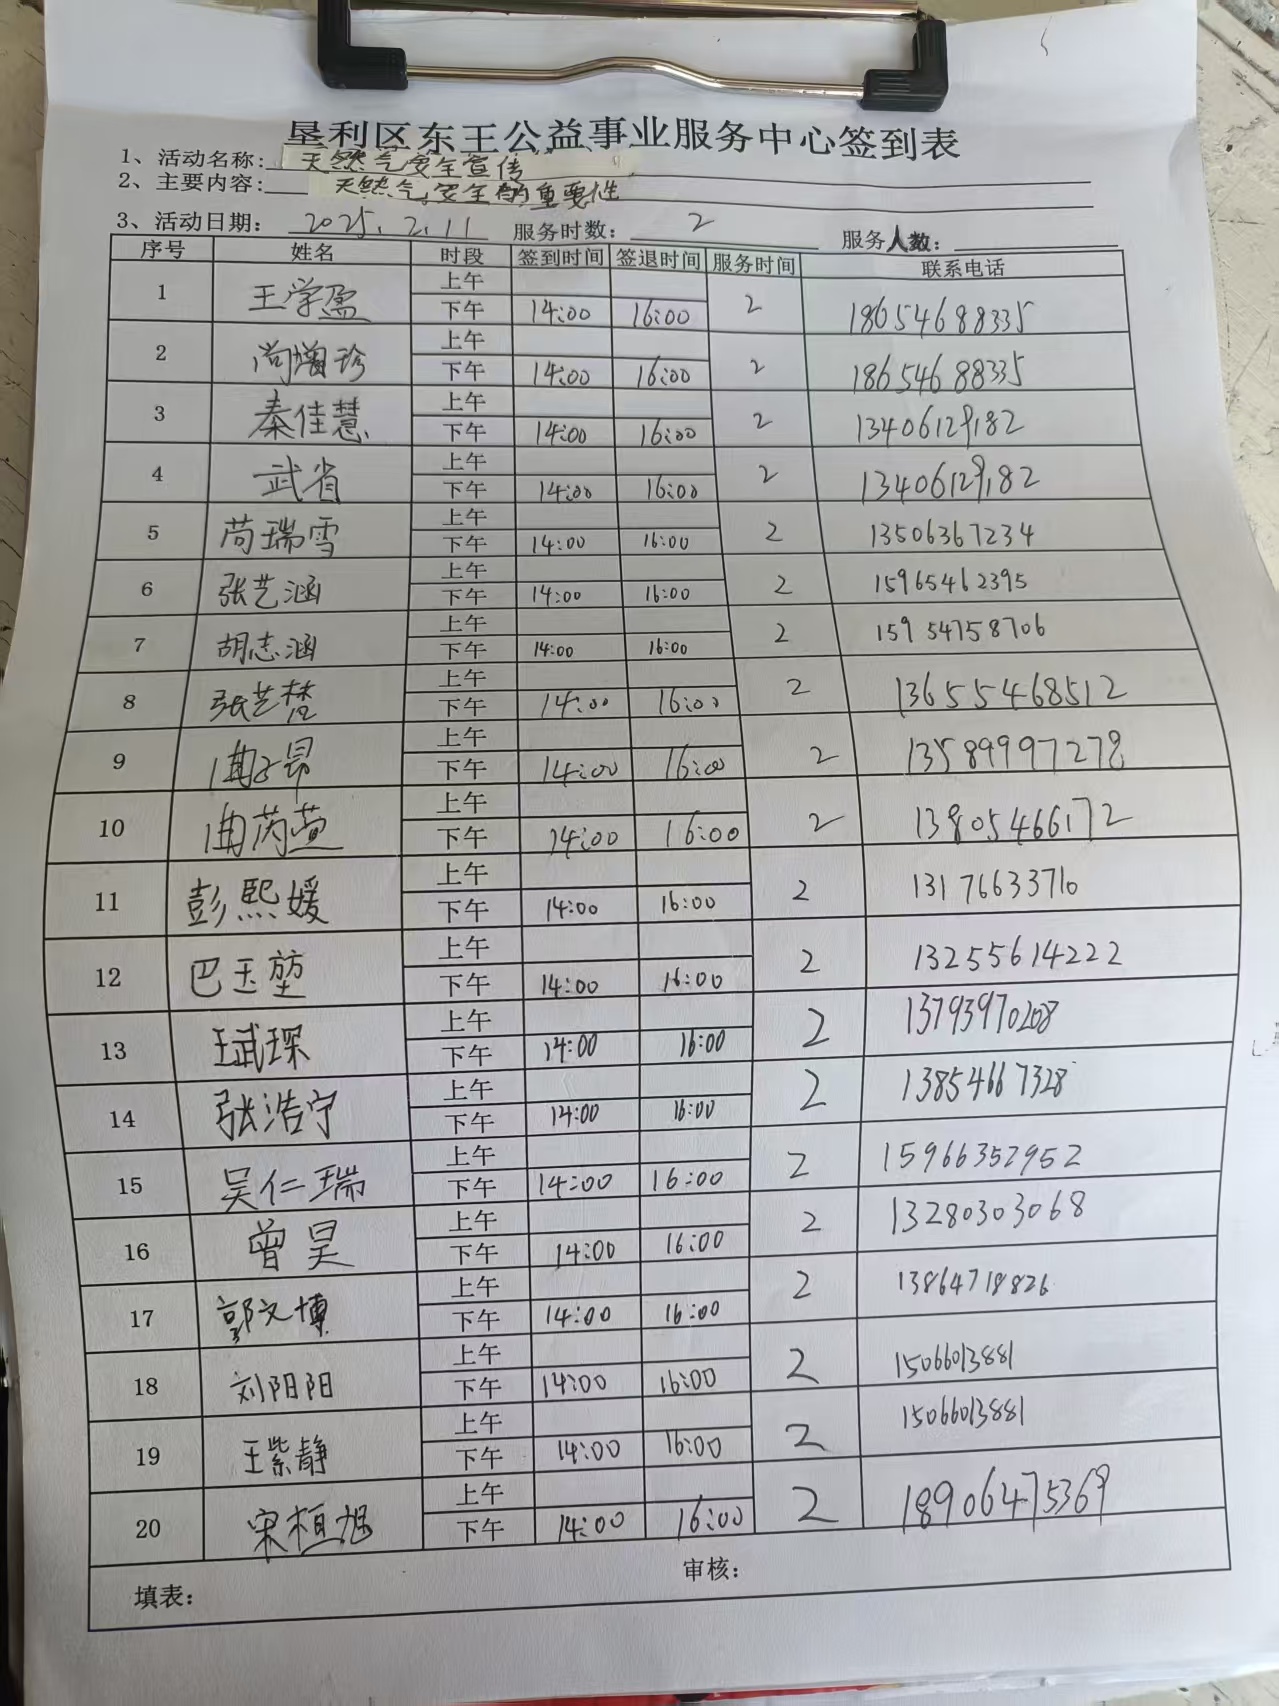 垦利区东王公益事业服务中心签到表
1、活动名称: 天然气安全宣传
2、主要内容: 天然气安全的重要性
3、活动日期: 2025.2.11 服务时数: 2 服务人数:
序号 姓名 时段 签到时间 签退时间 服务时间 联系电话
1 王学盈 上午
下午 14:00 16:00 2 18654688335
2 尚增珍 上午
下午 14:00 16:00 2 18654688335
3 秦佳慧 上午
下午 14:00 16:00 2 13406129182
4 武省 上午
下午 14:00 16:00 2 13406129182
5 苘瑞雪 上午
下午 14:00 16:00 2 13506367234
6 张艺涵 上午
下午 14:00 16:00 2 15965462395
7 胡志涵 上午
下午 14:00 16:00 2 15954758706
8 张艺梵 上午
下午 14:00 16:00 2 13655468512
9 曲子昂 上午
下午 14:00 16:00 2 13589997278
10 曲芮萱 上午
下午 14:00 16:00 2 13805466172
11 彭熙媛 上午
下午 14:00 16:00 2 13176633710
12 巴玉堃 上午
下午 14:00 16:00 2 13255614222
13 王武琛 上午
下午 14:00 16:00 2 13793970208
14 张浩宁 上午
下午 14:00 16:00 2 13854667328
15 吴仁瑞 上午
下午 14:00 16:00 2 15966352952
16 曾昊 上午
下午 14:00 16:00 2 13280303068
17 郭文博 上午
下午 14:00 16:00 2 13864718826
18 刘阳阳 上午
下午 14:00 16:00 2 15066013881
19 王紫静 上午
下午 14:00 16:00 2 15066013881
20 宋桓旭 上午
下午 14:00 16:00 2 18906475369
填表: 审核: